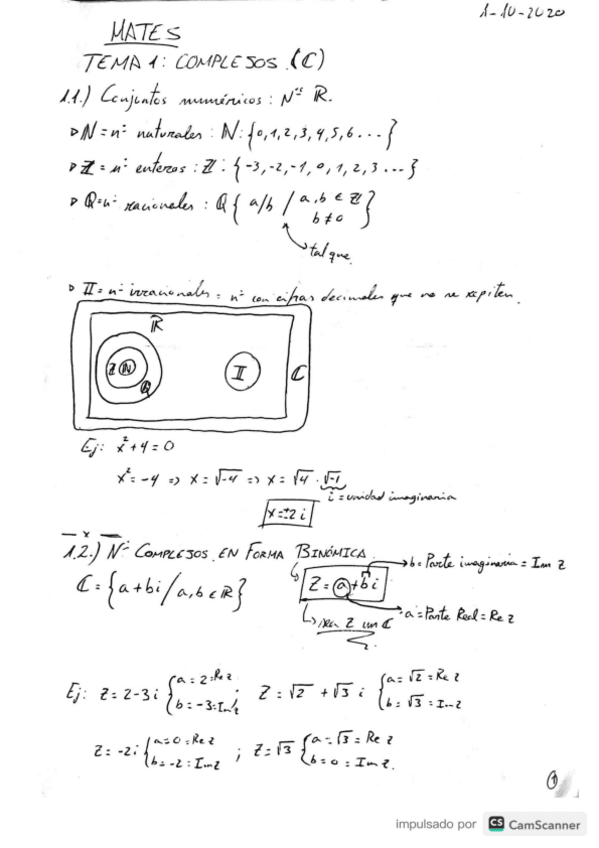 1-10-2020
MATES
TEMA 1: COMPLEJOS (ℂ)
1.1.) Conjuntos numéricos: Nºs ℝ.
▷ ℕ = nº naturales : ℕ: {0,1,2,3,4,5,6...}
▷ ℤ = nº enteros : ℤ: {-3,-2,-1,0,1,2,3...}
▷ ℚ = nº racionales : ℚ { a/b / a,b ∈ ℤ
b ≠ 0 }
tal que
▷ 𝕀 = nº irracionales = nº con cifras decimales que no se repiten.
ℝ
ℤ ℕ
ℚ
𝕀
ℂ
Ej: x² + 4 = 0
x² = -4 => x = √-4 => x = √4 · √-1
i = unidad imaginaria
x = ±2i
1.2.) Nº COMPLEJOS EN FORMA BINÓMICA
b = Parte imaginaria = Im Z
ℂ = {a + bi / a,b ∈ ℝ}
Z = a + bi
a = Parte Real = Re z
sea Z un ℂ
Ej: Z = 2 - 3i { a = 2 = Re z
b = -3 = Im z ;
Z = √2 + √3 i { a = √2 = Re z
b = √3 = Im z
Z = -2i { a = 0 = Re z
b = -2 = Im z ;
Z = √3 { a = √3 = Re z
b = 0 = Im z.
1
impulsado por CS CamScanner